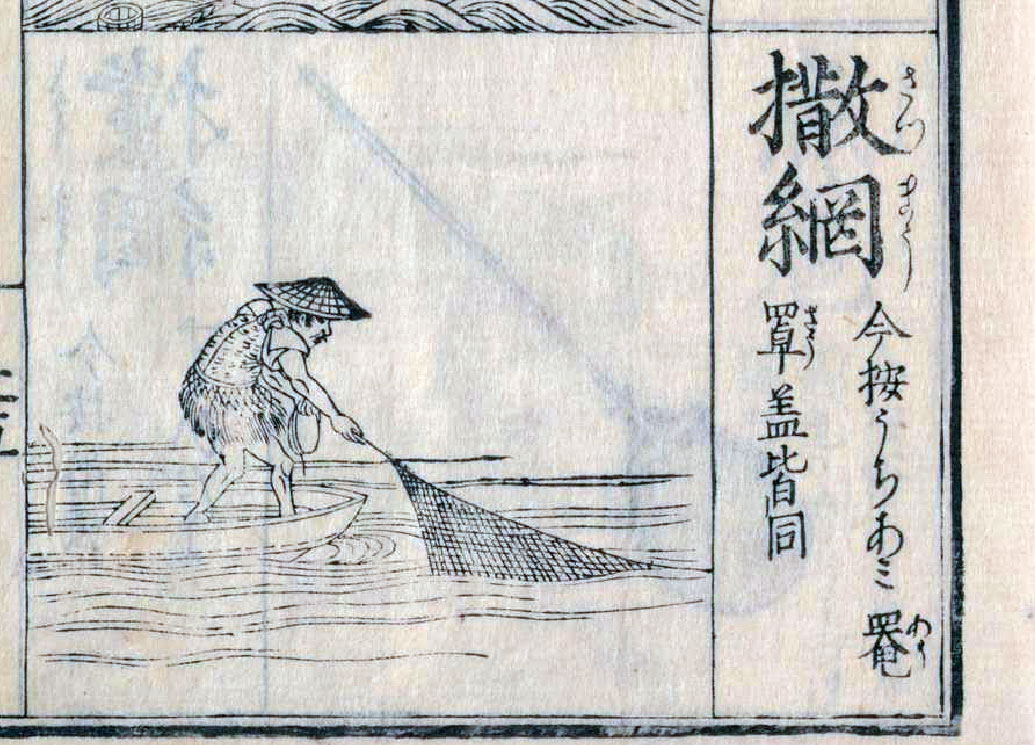 撒網
さつ
まう
今按うちあミ罨
罩盖皆同
さう